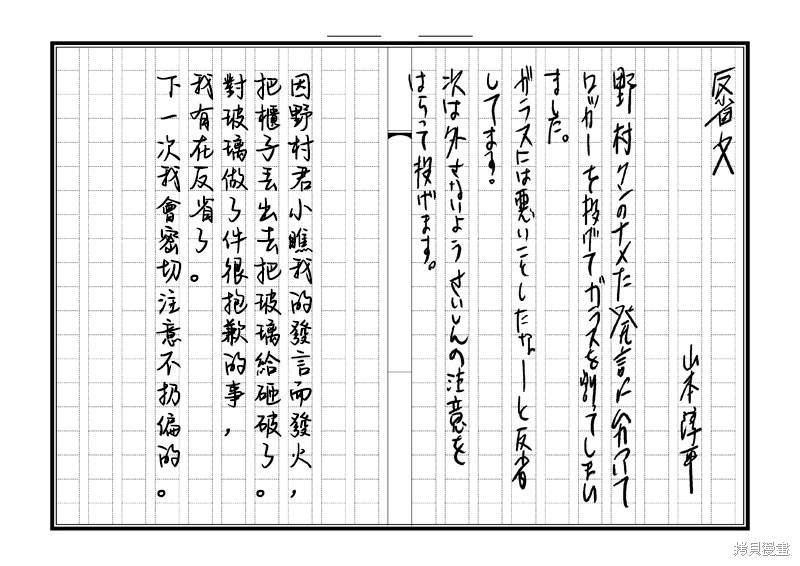 反省文
山本淳平
野村クンのナメた発言にムカついて
ロッカーを投げてガラスを割ってしまい
ました。
ガラスには悪いことしたなーと反省
してます。
次は外さないようさいしんの注意を
はらって投げます。
因野村君小瞧我的發言而發火，
把櫃子丢出去把玻璃給砸破了。
對玻璃做了件很抱歉的事，
我有在反省了。
下一次我會密切注意不扔偏的。
拷貝漫畫